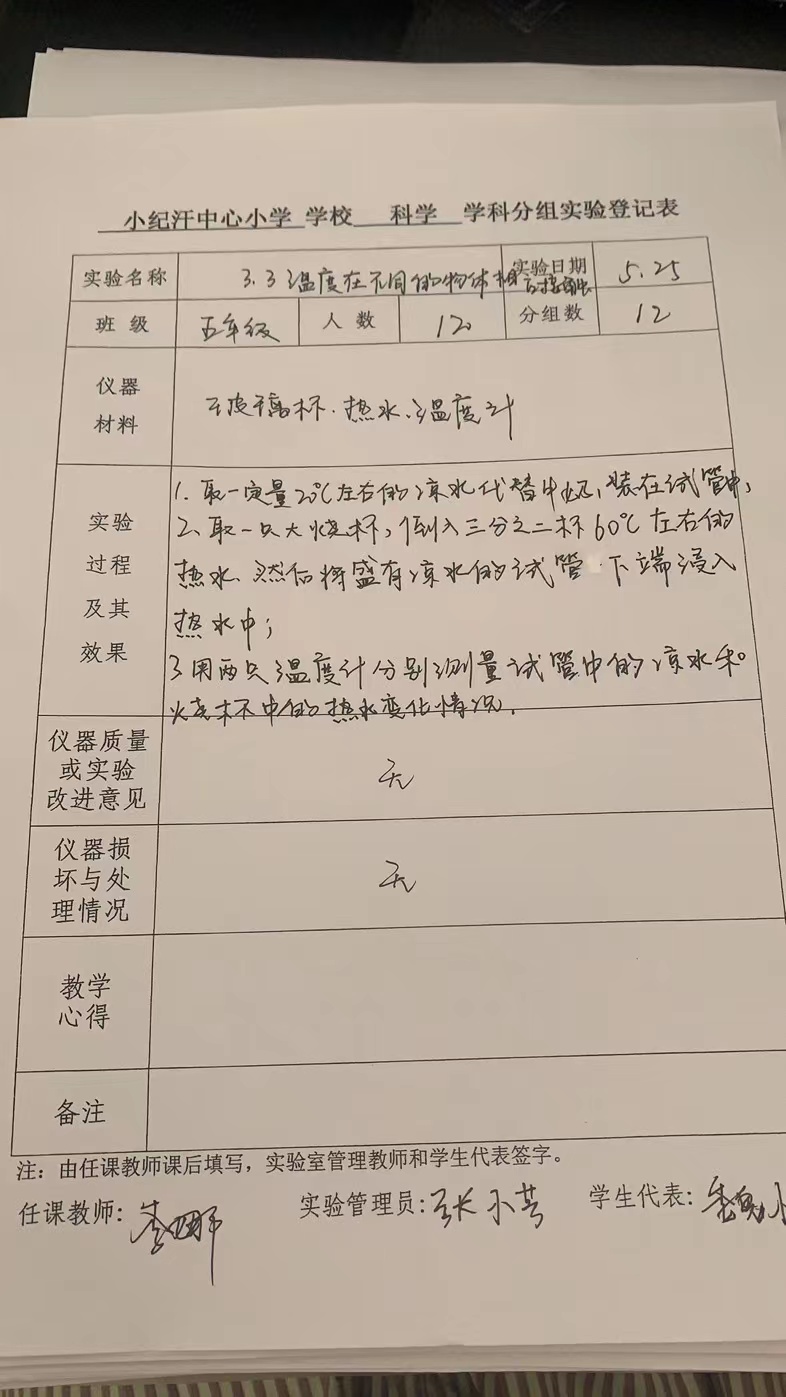 小纪汗中心小学 学校 科学 学科分组实验登记表
实验名称 3.3温度在不同的物体 实验日期 5.25
班 级 五年级 人 数 120 分组数 12
仪器
材料
玻璃杯、热水、温度计
实验
过程
及其
效果
1. 取一定量20℃左右的凉水代替牛奶,装在试管中;
2. 取一只大烧杯,倒入三分之二杯60℃左右的
热水,然后将盛有凉水的试管下端浸入
热水中;
3 用两只温度计分别测量试管中的凉水和
烧杯中的热水变化情况.
仪器质量
或实验
改进意见
无
仪器损
坏与处
理情况
无
教学
心得
备注
注:由任课教师课后填写,实验室管理教师和学生代表签字。
任课教师: 实验管理员:张小芸 学生代表: